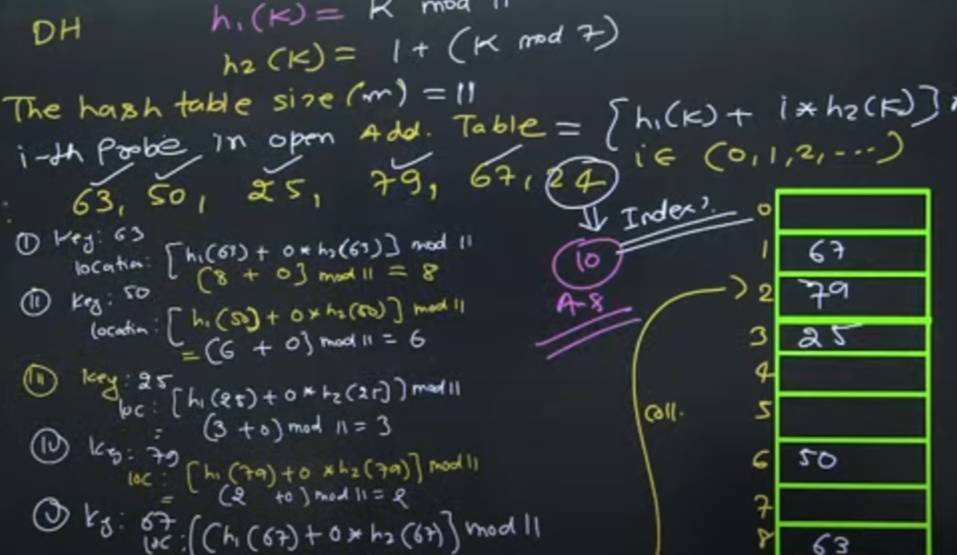 DH
h₁(K) = K mod 11
h₂(K) = 1 + (K mod 7)
The hash table size (m) = 11
i-th Probe in open Add. Table = [h₁(K) + i*h₂(K)]
i ∈ (0,1,2,---)
63, 50, 25, 79, 67, 24
Index?
10
A-8
① Key: 63
location: [h₁(63) + 0*h₂(63)] mod 11
(8 + 0) mod 11 = 8
(II) Key: 50
location: [h₁(50) + 0*h₂(50)] mod 11
= (6 + 0) mod 11 = 6
(III) Key: 25
loc: [h₁(25) + 0*h₂(25)] mod 11
= (3 + 0) mod 11 = 3
(IV) Key: 79
loc: [h₁(79) + 0*h₂(79)] mod 11
= (2 + 0) mod 11 = 2
(V) Key: 67
loc: [(h₁(67) + 0*h₂(67)] mod 11
coll.
0
1 67
2 79
3 25
4
5
6 50
7
8 63